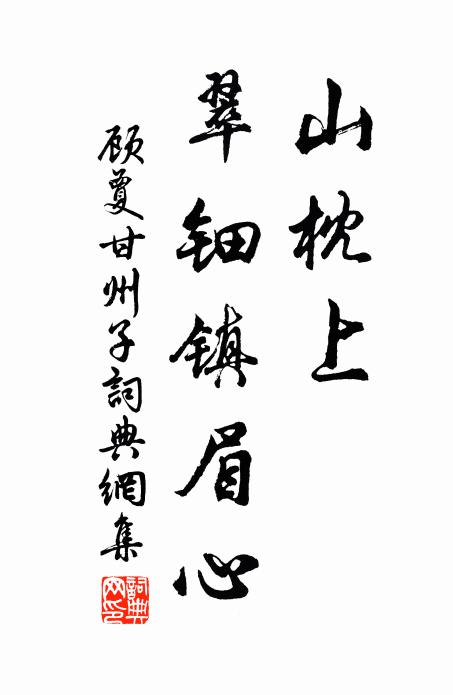 山枕上
翠钿镇眉心
顾夐甘州子詞典網集
詞典网印